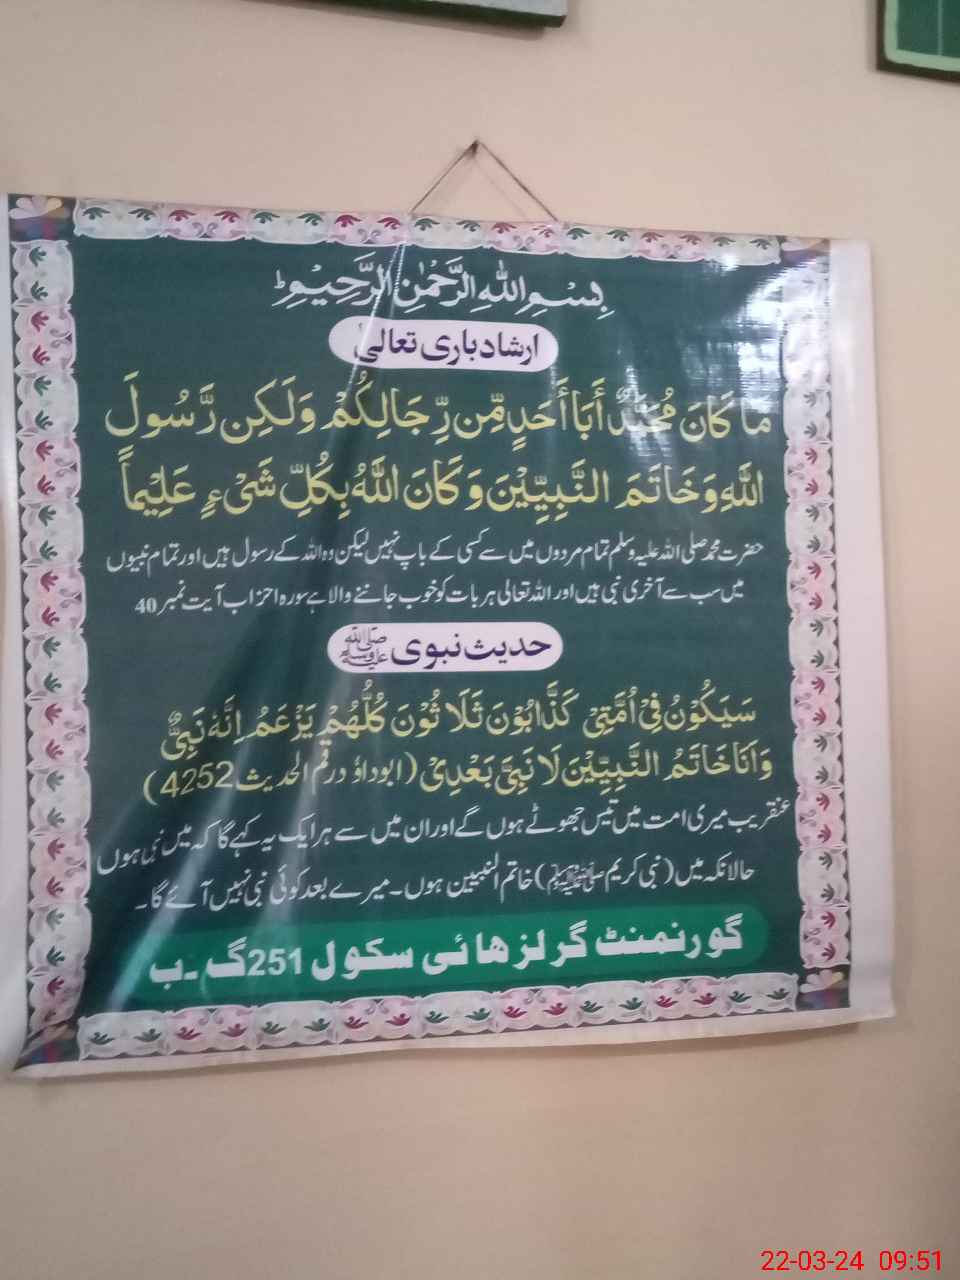 بِسْمِ اللهِ الرَّحْمٰنِ الرَّحِيْمِ ط
ارشاد باری تعالیٰ
مَا كَانَ مُحَمَّدٌ أَبَا أَحَدٍ مِّن رِّجَالِكُمْ وَلَكِن رَّسُولَ
اللَّهِ وَخَاتَمَ النَّبِيِّيْنَ وَكَانَ اللَّهُ بِكُلِّ شَيْءٍ عَلِيْماً
حضرت محمد صلی اللہ علیہ وسلم تمام مردوں میں سے کسی کے باپ نہیں لیکن وہ اللہ کے رسول ہیں اور تمام نبیوں
میں سب سے آخری نبی ہیں اور اللہ تعالی ہر بات کو خوب جاننے والا ہے سورہ احزاب آیت نمبر 40
حدیث نبوی صلی اللہ علیہ وسلم
سَيَكُوْنُ فِيْ اُمَّتِيْ كَذَّابُوْنَ ثَلَاثُوْنَ كُلُّهُمْ يَزْعَمُ اِنَّهٗ نَبِيٌّ
وَاَنَا خَاتَمُ النَّبِيِّيْنَ لَا نَبِيَّ بَعْدِيْ (ابوداؤد رقم الحديث 4252)
عنقریب میری امت میں تیس جھوٹے ہوں گے اور ان میں سے ہر ایک یہ کہے گا کہ میں نبی ہوں
حالانکہ میں (نبی کریم ﷺ) خاتم النبیین ہوں۔ میرے بعد کوئی نبی نہیں آئے گا۔
گورنمنٹ گرلز ھائی سکول 251 گ ۔ ب
22-03-24 09:51